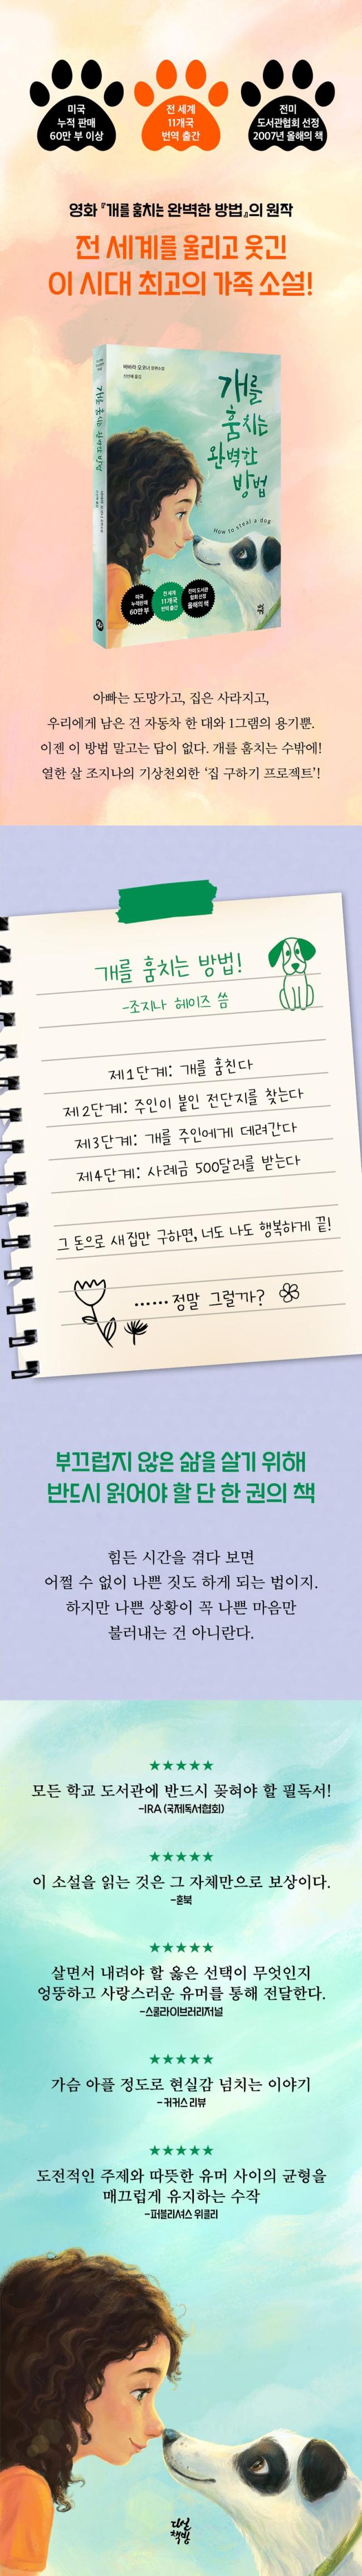 미국
누적 판매
60만 부 이상
전 세계
11개국
번역 출간
전미
도서관협회 선정
2007년 올해의 책
영화 『개를 훔치는 완벽한 방법』의 원작
전 세계를 울리고 웃긴
이 시대 최고의 가족 소설!
개를 훔치는 완벽한 방법
바바라 오코너 장편소설
신선해 옮김
개를
훔치는
완벽한
방법
How to steal a dog
미국
누적판매
60만 부
전 세계
11개국
번역 출간
전미 도서관
협회 선정
올해의 책
아빠는 도망가고, 집은 사라지고,
우리에게 남은 건 자동차 한 대와 1그램의 용기뿐.
이젠 이 방법 말고는 답이 없다. 개를 훔치는 수밖에!
열한 살 조지나의 기상천외한 ‘집 구하기 프로젝트’!
개를 훔치는 방법!
-조지나 헤이즈 씀
제1단계: 개를 훔친다
제2단계: 주인이 붙인 전단지를 찾는다
제3단계: 개를 주인에게 데려간다
제4단계: 사례금 500달러를 받는다
그 돈으로 새 집만 구하면, 너도 나도 행복하게 끝!
......정말 그럴까?
부끄럽지 않은 삶을 살기 위해
반드시 읽어야 할 단 한 권의 책
힘든 시간을 겪다 보면
어쩔 수 없이 나쁜 짓도 하게 되는 법이지.
하지만 나쁜 상황이 꼭 나쁜 마음만
불러내는 건 아니란다.
★★★★★
모든 학교 도서관에 반드시 꽂혀야 할 필독서!
-IRA (국제독서협회)
★★★★★
이 소설을 읽는 것은 그 자체만으로 보상이다.
-혼북
★★★★★
살면서 내려야 할 옳은 선택이 무엇인지
엉뚱하고 사랑스러운 유머를 통해 전달한다.
-스쿨라이브러리저널
★★★★★
가슴 아플 정도로 현실감 넘치는 이야기
- 커커스 리뷰
★★★★★
도전적인 주제와 따뜻한 유머 사이의 균형을
매끄럽게 유지하는 수작
-퍼블리셔스 위클리
다실
책방